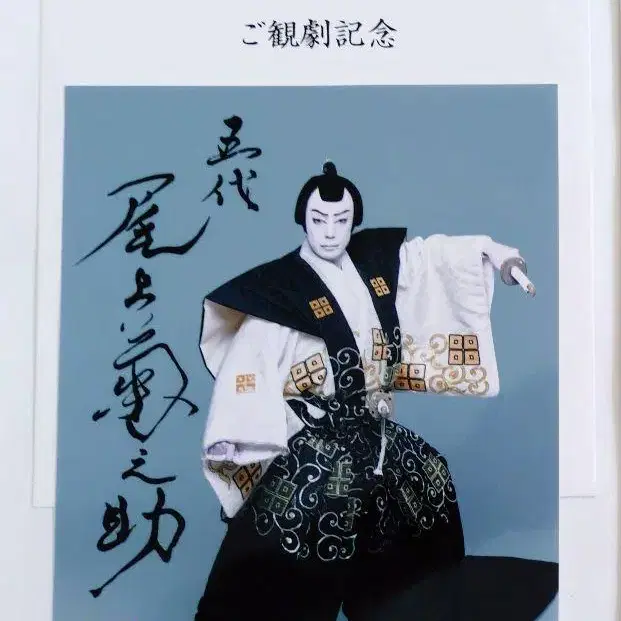 ご観劇記念
五代
尾上菊之助